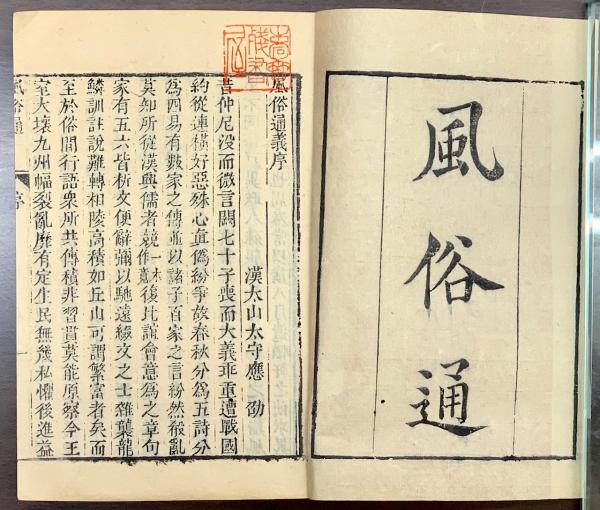 風俗通
風俗通義序
漢太山太守應 劭
昔仲尼没而微言闕七十子喪而大義乖重遭戰國
約從連橫好惡殊心眞僞紛爭故春秋分爲五詩分
爲四易有數家之傳並以諸子百家之言紛然殽亂
莫知所從漢興儒者競後比誼會意爲之章句
家有五六皆析文便辭彌以馳遠綴文之士雜襲龍
鱗訓註說難轉相陵高積如丘山可謂繁富者矣而
至於俗間行語衆所共傳積非習貫莫能原察今王
室大壞九州幅裂亂靡有定生民無幾私懼後進益
風俗通 序